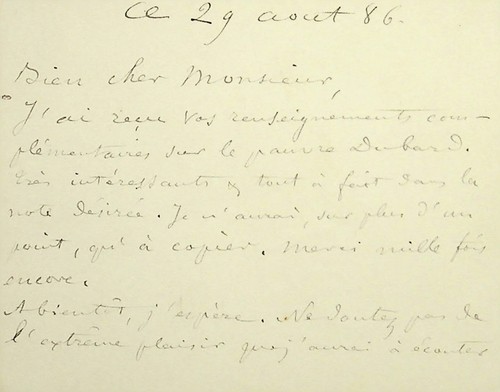 ce 29 août 86.
Bien cher Monsieur,
J'ai reçu vos renseignements com-
plémentaires sur le pauvre Dubard.
Très intéressants & tout à fait dans la
note désirée. Je n'aurai, sur plus d'un
point, qu'à copier. Merci mille fois
encore.
A bientôt, j'espère. Ne doutez pas de
l'extrême plaisir que j'aurai à écouter